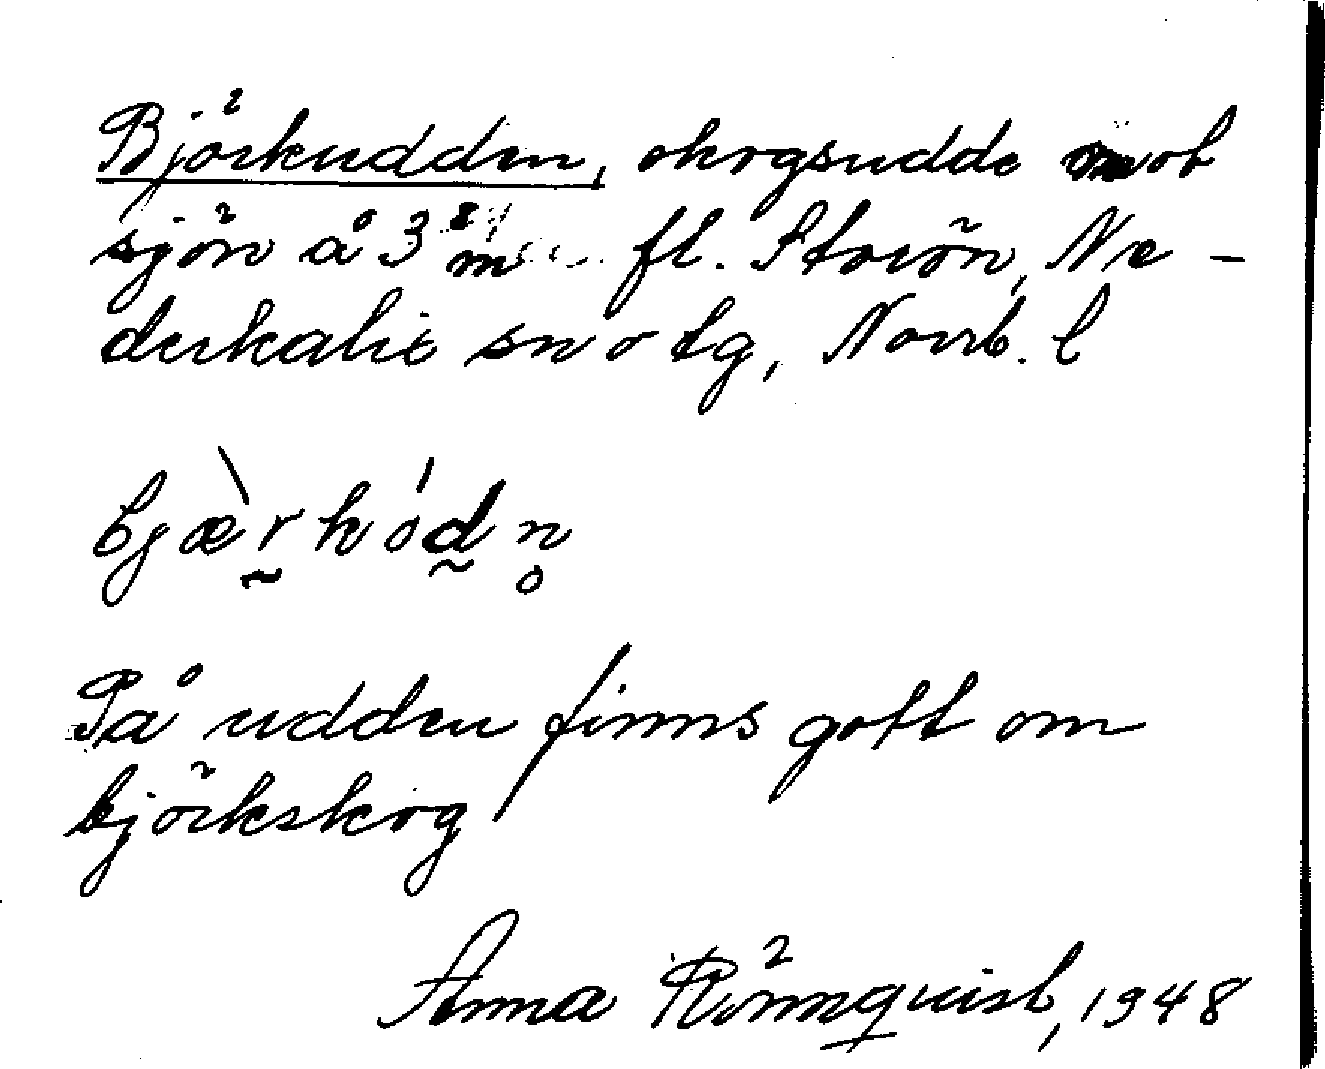 Björkudden, skogsudde mot
sjön å 3 m fl. Storön, Ne-
derkalix sn o tg, Norrb. l
bjæ̀r̰kód̰n̥
På udden finns gott om
björkskog
Anna Rönnquist, 1948